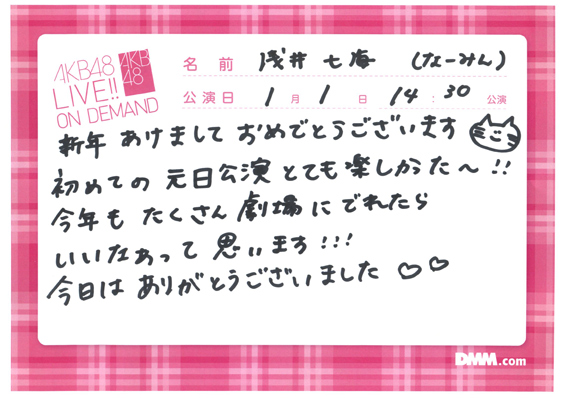 AKB48
LIVE!!
ON DEMAND
AKB
48
名前 浅井七海 (なーみん)
公演日 1月1日 14:30 公演
新年 あけまして おめでとうございます
初めての 元日公演 とても楽しかった〜!!
今年も たくさん 劇場に でれたら
いいなあって 思います!!!
今日は ありがとうございました ♡♡
DMM.com